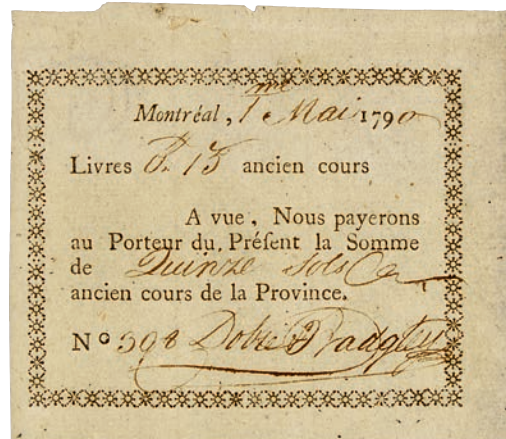 Montréal, 1me Mai 1790
Livres 0. 15 ancien cours
A vue, Nous payerons
au Porteur du Préſent la Somme
de Quinze Sols
ancien cours de la Province.
No 398 Dobie & Badgley